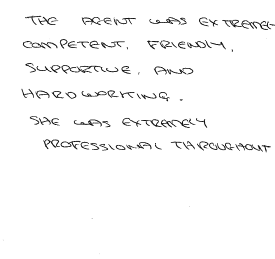 THE AGENT WAS EXTREMELY
COMPETENT, FRIENDLY,
SUPPORTIVE, AND
HARDWORKING.
SHE WAS EXTREMELY
PROFESSIONAL THROUGHOUT